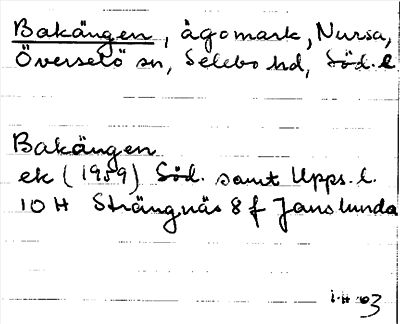 Bakängen, ägomark, Nursa,
Överselö sn, Selebo hd, Söd. l
Bakängen
ek (1959) Söd. samt Upps. l.
10 H Strängnäs 8 f Janslunda